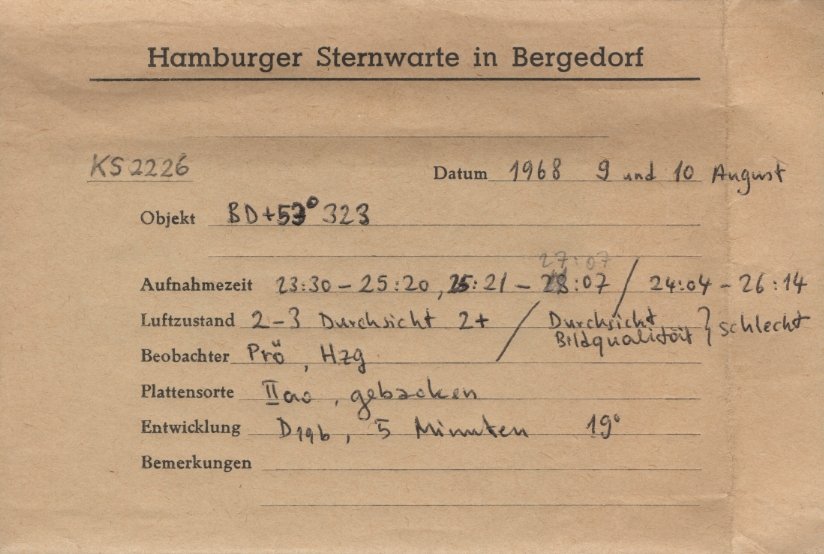 Hamburger Sternwarte in Bergedorf
KS 2226 Datum 1968 9 und 10 August
Objekt BD+53° 323
27:07
Aufnahmezeit 23:30 – 25:20, 25:21 – 28:07 / 24:04 – 26:14
Luftzustand 2–3 Durchsicht 2+ / Durchsicht } schlecht
Bildqualität
Beobachter Prö, Hzg
Plattensorte IIao, gebacken
Entwicklung D19b, 5 Minuten 19°
Bemerkungen